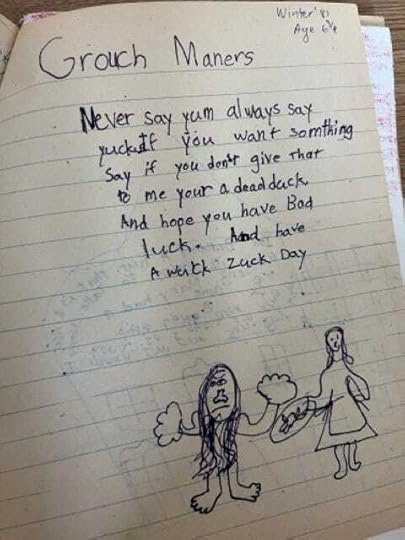 Winter '81
Age 6 3/4
Grouch Maners
Never say yum always say
yuck. If you want somthing
Say if you don't give that
to me your a dead duck.
And hope you have Bad
luck. And have
A Zuck Day